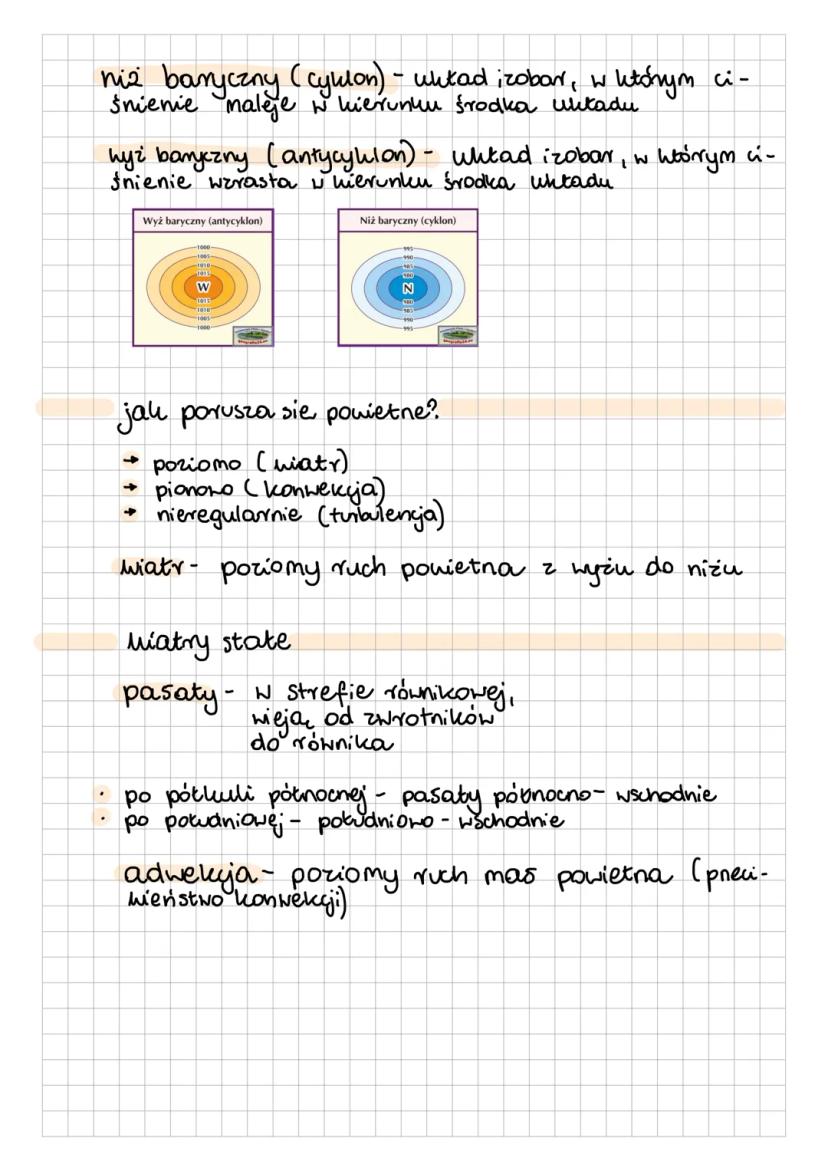 niż baryczny (cyklon) - układ izobar, w którym ci-
śnienie maleje w kierunku środka układu
wyż baryczny (antycyklon) - układ izobar, w którym ci-
śnienie wzrasta w kierunku środka układu
Wyż baryczny (antycyklon)
1000
1005
1010
1015
W
1015
1010
1005
1000
Niż baryczny (cyklon)
995
990
985
980
N
980
985
990
995
jak porusza sie powietrze?
→ poziomo (wiatr)
→ pionowo (konwekcja)
→ nieregularnie (turbulencja)
wiatr - poziomy ruch powietrza z wyżu do niżu
wiatry stałe
pasaty - w strefie równikowej,
wieją od zwrotników
do równika
• po półkuli północnej - pasaty północno-wschodnie
• po południowej - południowo-wschodnie
adwekcja - poziomy ruch mas powietrza (przeci-
wieństwo konwekcji)